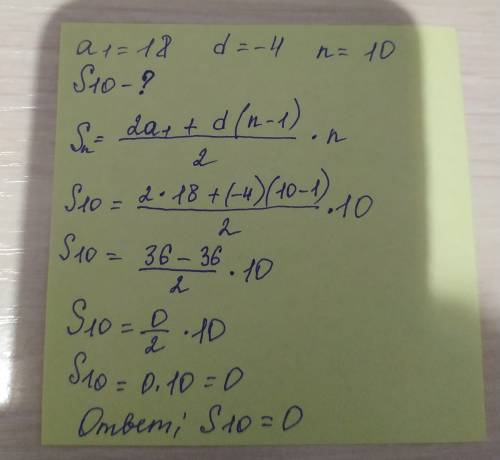 a1 = 18 d = -4 n = 10
S10 - ?
Sn = (2a1 + d(n-1))/2 · n
S10 = (2·18 + (-4)(10-1))/2 · 10
S10 = (36 - 36)/2 · 10
S10 = 0/2 · 10
S10 = 0·10 = 0
Ответ; S10 = 0